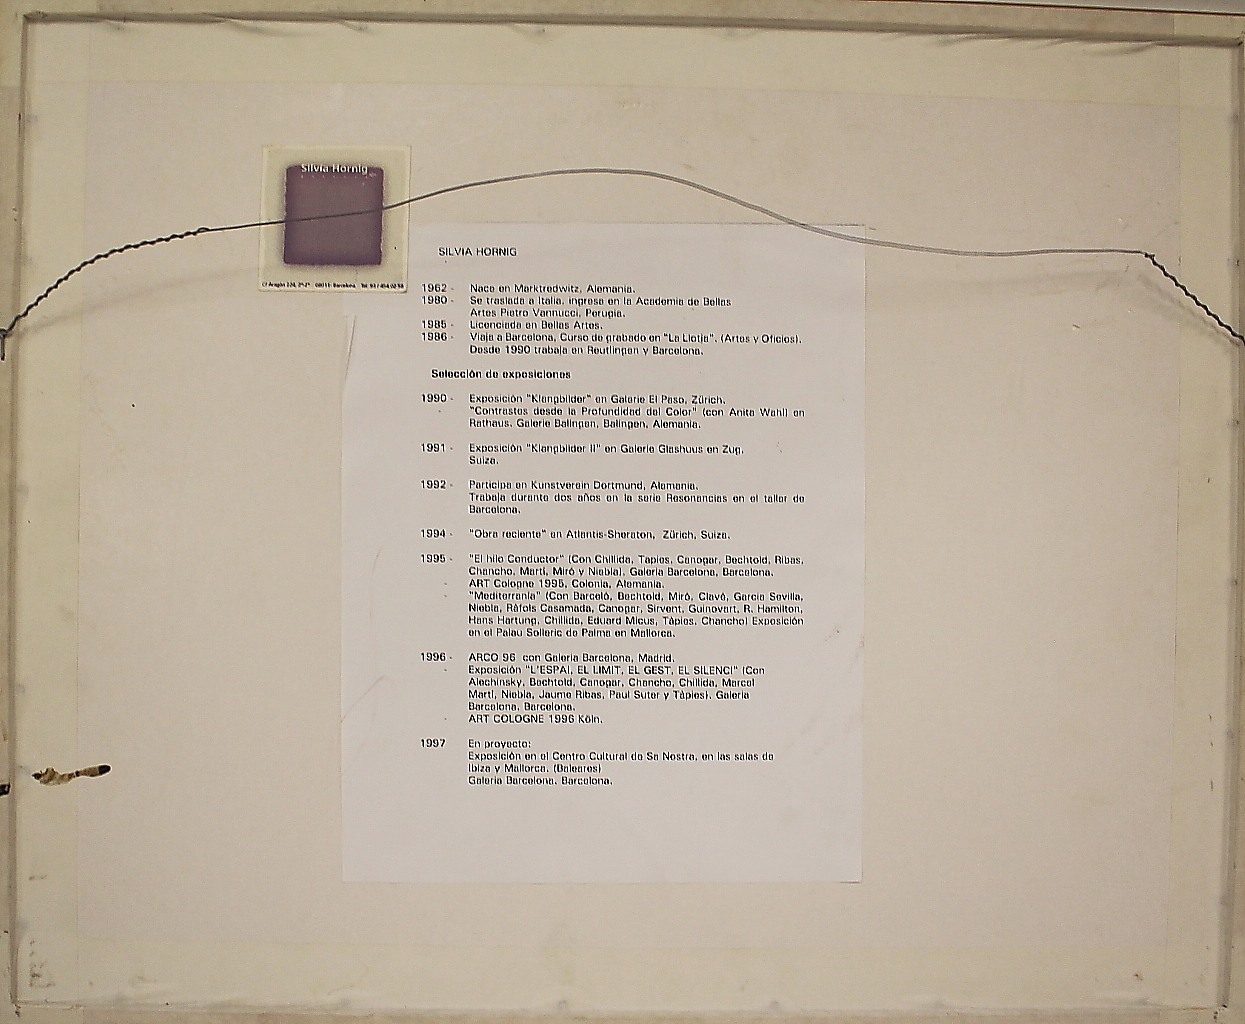 Silvia Hornig
C/ Aragón 224, 2º-2ª 08011- Barcelona Tel. 93 / 454 02 58
SILVIA HORNIG
1962 - Nace en Marktredwitz, Alemania.
1980 - Se traslada a Italia, ingresa en la Academia de Bellas
Artes Pietro Vannucci, Perugia.
1985 - Licenciada en Bellas Artes.
1986 - Viaja a Barcelona, Curso de grabado en "La Llotja". (Artes y Oficios).
Desde 1990 trabaja en Reutlingen y Barcelona.
Selección de exposiciones
1990 - Exposición "Klangbilder" en Galerie El Paso, Zürich.
- "Contrastes desde la Profundidad del Color" (con Anita Wahl) en
Rathaus. Galerie Balingen, Balingen, Alemania.
1991 - Exposición "Klangbilder II" en Galerie Glashuus en Zug,
Suiza.
1992 - Participa en Kunstverein Dortmund, Alemania.
Trabaja durante dos años en la serie Resonancias en el taller de
Barcelona.
1994 - "Obra reciente" en Atlantis-Sheraton, Zürich, Suiza.
1995 - "El hilo Conductor" (Con Chillida, Tapies, Canogar, Bechtold, Ribas,
Chancho, Martí, Miró y Niebla). Galería Barcelona, Barcelona.
- ART Cologne 1995, Colonia, Alemania.
- "Mediterrania" (Con Barceló, Bechtold, Miró, Clavé, Garcia Sevilla,
Niebla, Ràfols Casamada, Canogar, Sirvent, Guinovart, R. Hamilton,
Hans Hartung, Chillida, Eduard Micus, Tàpies, Chancho) Exposición
en el Palau Solleric de Palma en Mallorca.
1996 - ARCO 96 con Galería Barcelona, Madrid.
- Exposición "L'ESPAI, EL LIMIT, EL GEST, EL SILENCI" (Con
Alechinsky, Bechtold, Canogar, Chancho, Chillida, Marcel
Martí, Niebla, Jaume Ribas, Paul Suter y Tàpies). Galería
Barcelona, Barcelona.
- ART COLOGNE 1996 Köln.
1997 En proyecto:
Exposición en el Centro Cultural de Sa Nostra, en las salas de
Ibiza y Mallorca. (Baleares)
Galería Barcelona. Barcelona.